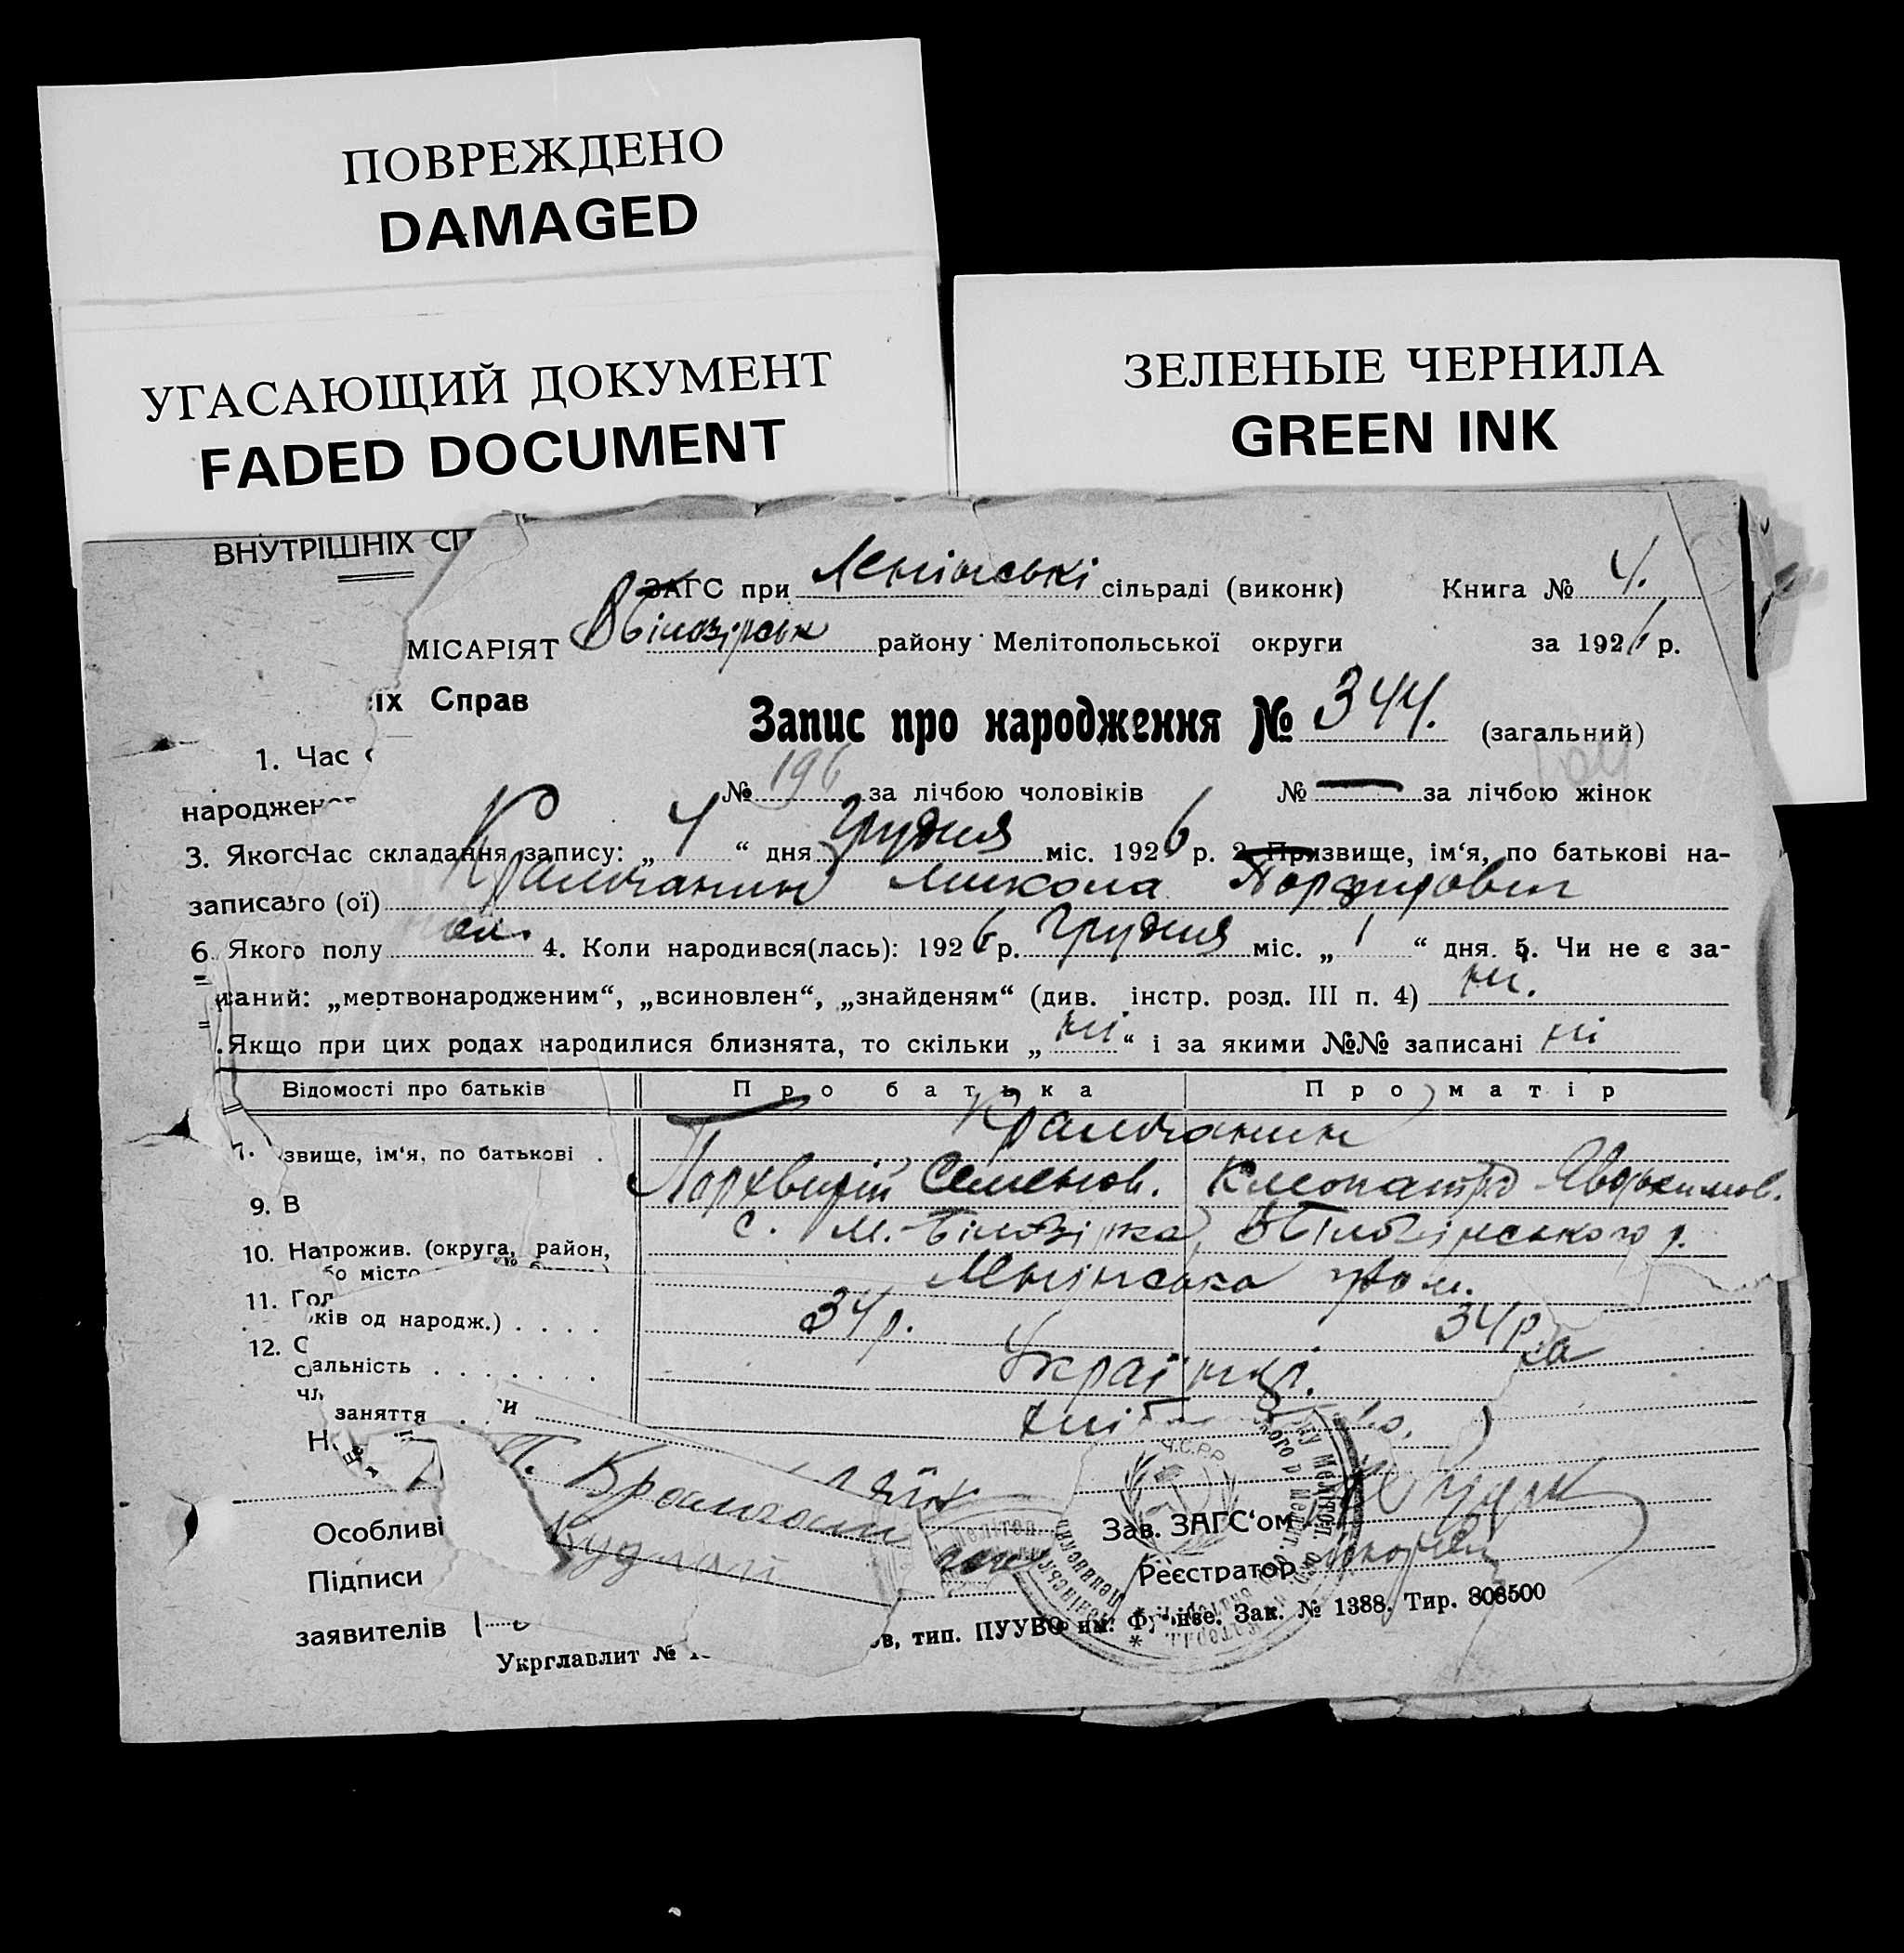 ПОВРЕЖДЕНО
DAMAGED
УГАСАЮЩИЙ ДОКУМЕНТ
FADED DOCUMENT
ЗЕЛЕНЫЕ ЧЕРНИЛА
GREEN INK
ВНУТРІШНІХ СП
ЗАГС при Ленінські сільраді (виконк) Книга № 4.
МІСАРІЯТ ВБілозірськ району Мелітопольської округи за 1926 р.
іх Справ
Запис про народження № 344. (загальний)
1. Час
№ 196 за лічбою чоловіків № — за лічбою жінок
народжен
3. Якого Час складання запису: „ 4 “ дня Грудня міс. 1926 р. 2. Призвище, ім‘я, по батькові на-
записа го (ої) Крамчанин Микола Порфирович
6. Якого полу чол. 4. Коли народився(лась): 1926 р. Грудня міс. „ 1 “ дня. 5. Чи не є за-
саний: „мертвонародженим“, „всиновлен“, „знайденям“ (див. інстр. розд. III п. 4) ні.
Якщо при цих родах народилися близнята, то скільки „ ні “ і за якими №№ записані ні
Відомості про батьків Про батька Про матір
Крамчанин
7. звище, ім‘я, по батькові .
Порхвирій Семенов. Клеопатра Явдокимов.
9. В
с. М.-Білозірка, ВБілозірського р.
10. На прожив. (округа, район,
бо місто
Ленінська
11. Гол
ків од народж.) . . . . 34 р. 34 р.
12. С
альність . . . . . . . Українці.
чл
заняття . и
Н
П. Крамчан
Особливі
Зав. ЗАГС‘ом
Підписи
Реєстратор
заявителів
Укрглавлит № ов, тип. ПУУВО им. Фрунзе. Зак. № 1388. Тир. 808500